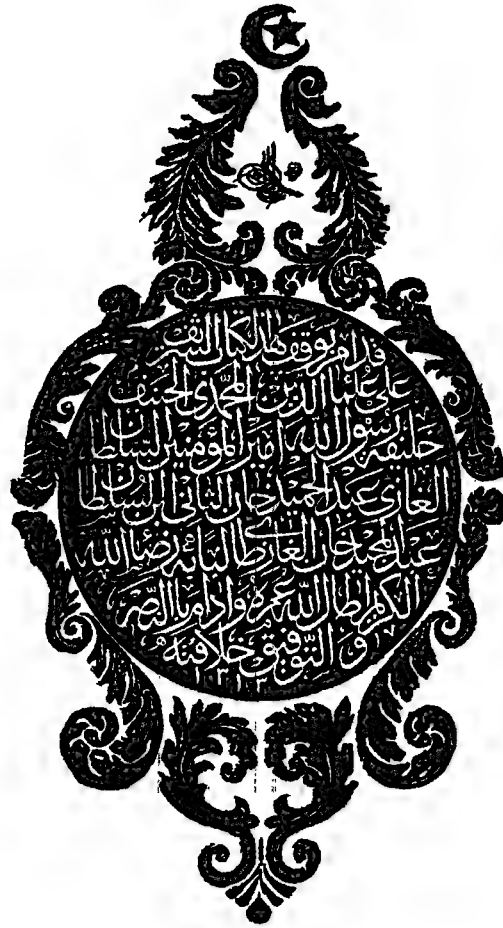 قد امر بوقف هذا الكتاب الشريف
على علماء الدين المحمدي الحنيف
خليفة رسول الله امير المؤمنين السلطان
الغازي عبد الحميد خان الثاني ابن السلطان
عبد المجيد خان الغازي طالبا به رضا الله
الكريم اطال الله عمره وادام بالنصر
والتوفيق خلافته